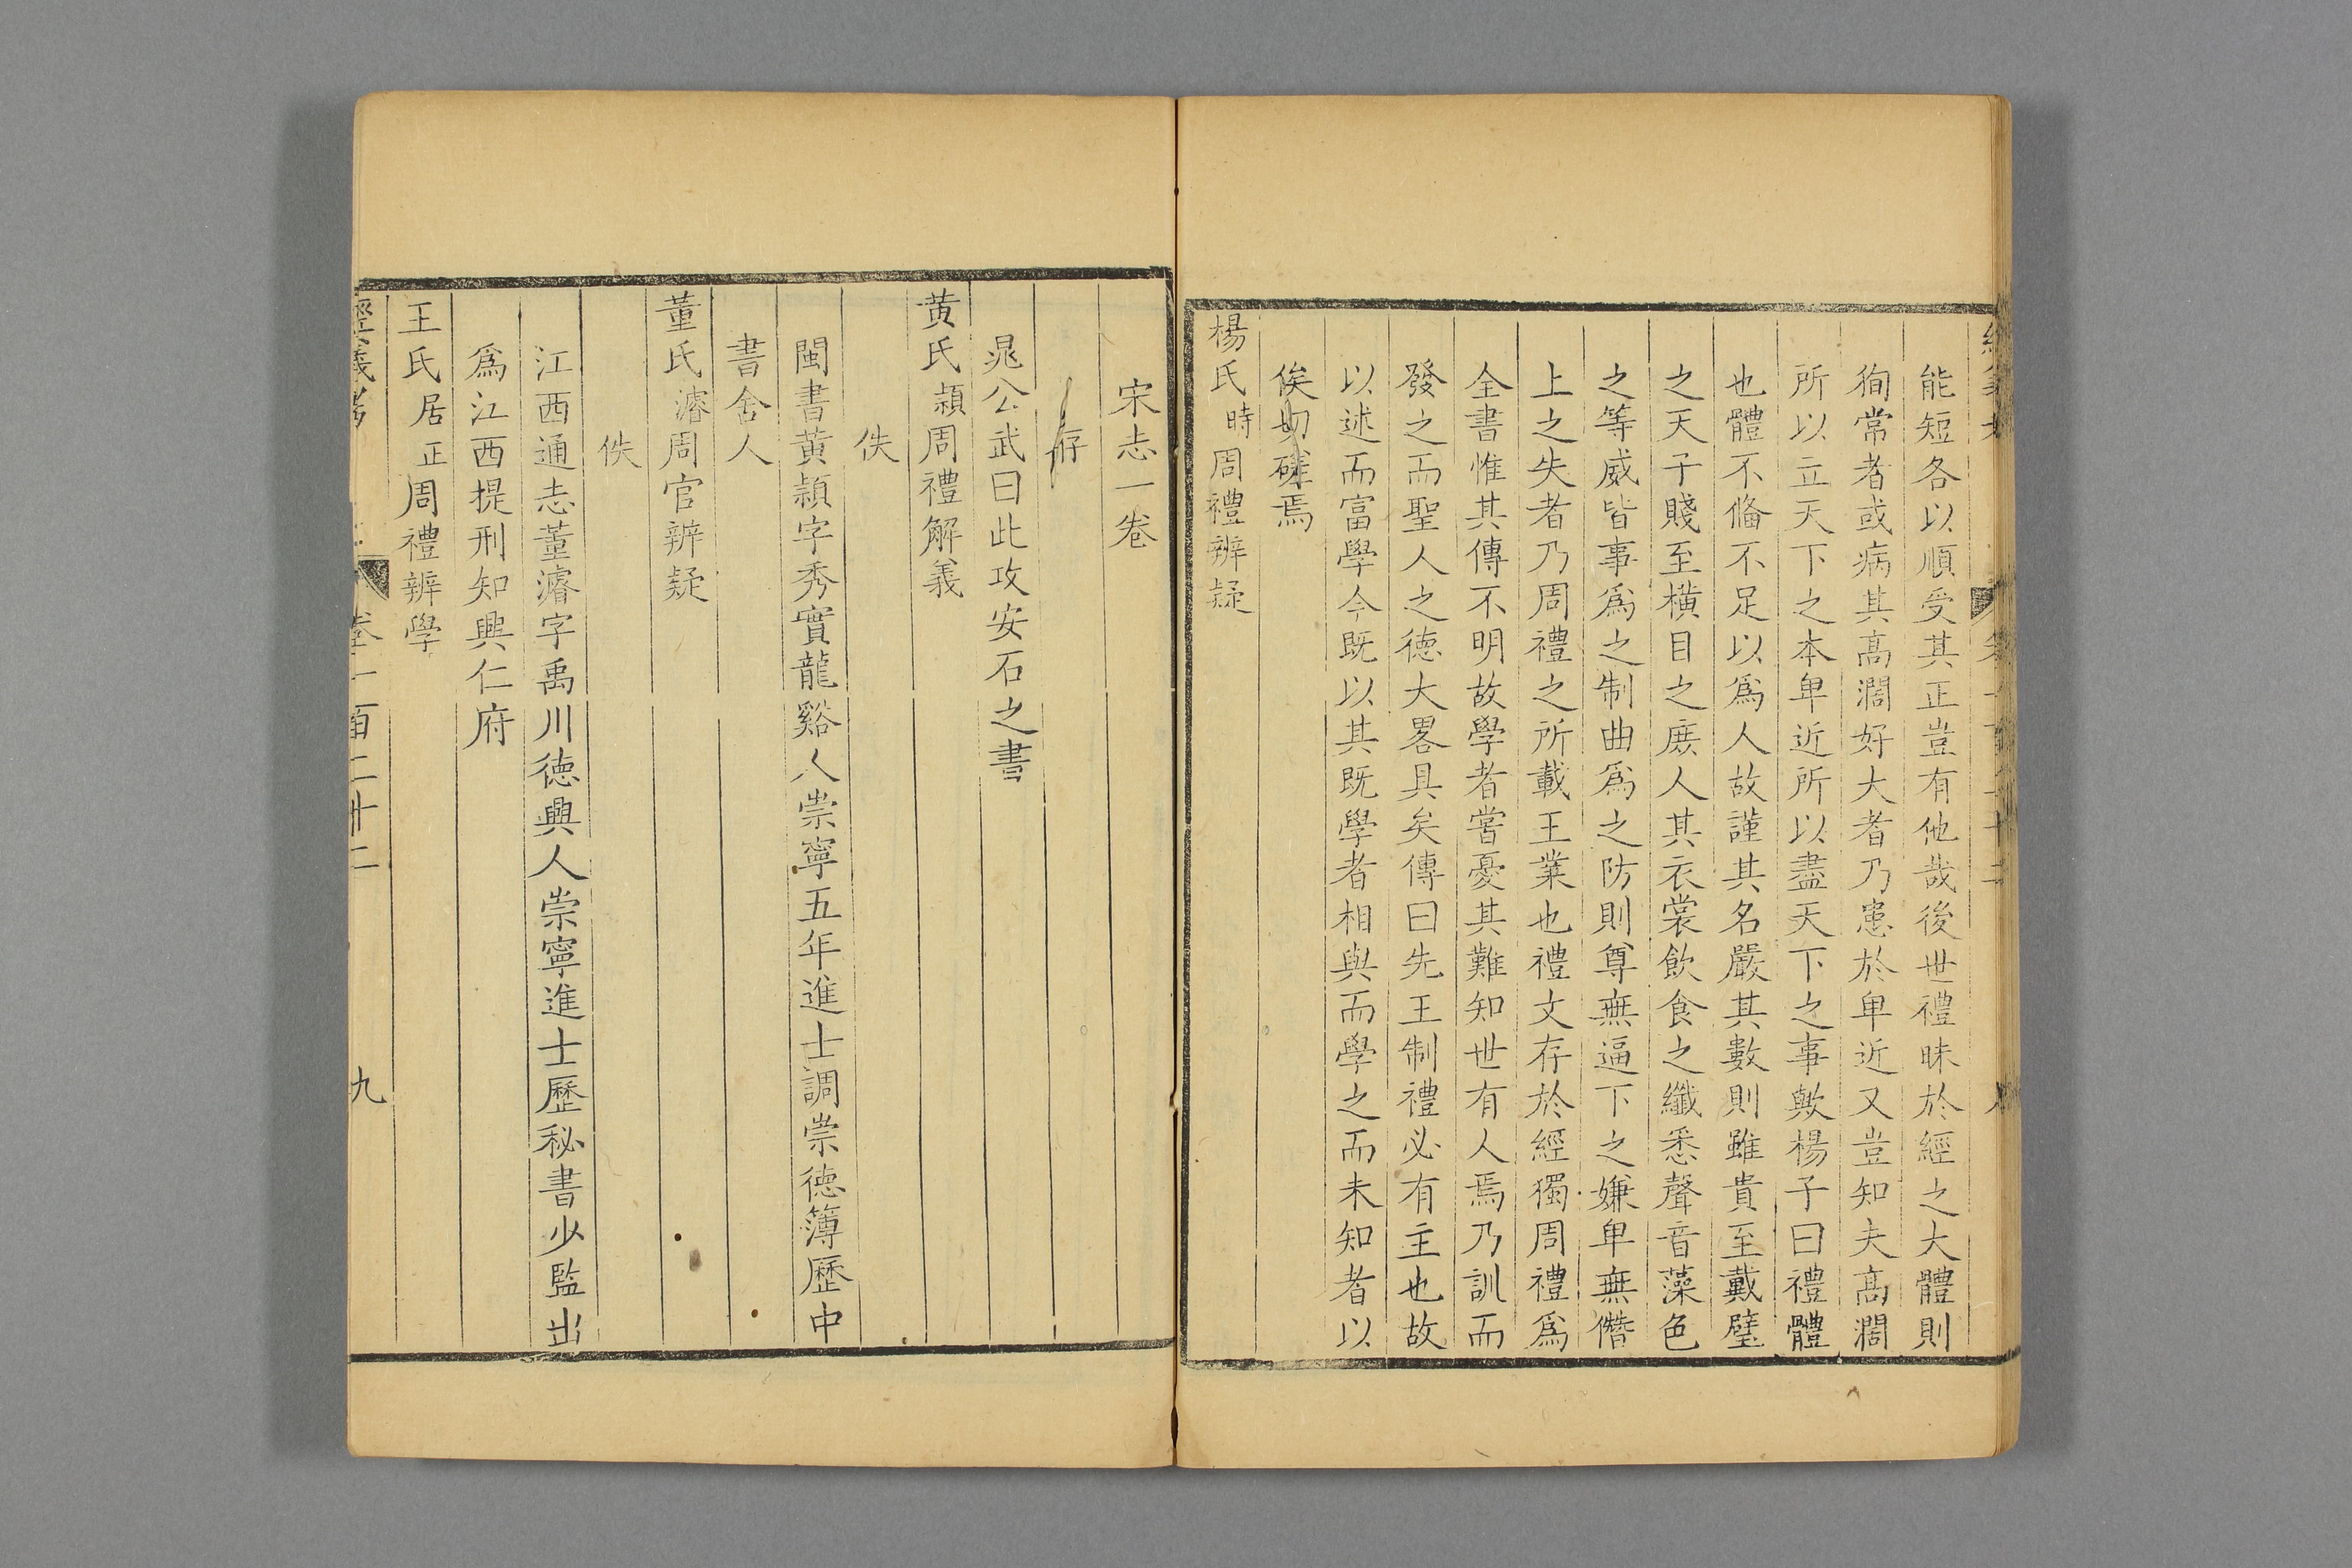 能短各以順受其正豈有他哉後世禮昧於經之大體則
狥常者或病其髙濶好大者乃患於卑近又豈知夫髙濶
所以立天下之本卑近所以盡天下之事歟楊子曰禮體
也體不俻不足以爲人故謹其名嚴其數則雖貴至戴璧
之天子賤至橫目之庶人其衣裳飲食之纖悉聲音藻色
之等威皆事爲之制曲爲之防則尊無逼下之嫌卑無僭
上之失者乃周禮之所載王業也禮文存於經獨周禮爲
全書惟其傳不明故學者嘗憂其難知世有人焉乃訓而
發之而聖人之徳大畧具矣傳曰先王制禮必有主也故
以述而富學今既以其既學者相與而學之而未知者以
俟切磋焉
楊氏時周禮辨疑
宋志一卷
存
晁公武曰此攻安石之書
黄氏頴周禮解義
佚
閩書黄頴字秀實龍谿人崇寧五年進士調崇徳簿歷中
書舍人
董氏濬周官辨疑
佚
江西通志董濬字禹川徳興人崇寧進士歷秘書少監出
爲江西提刑知興仁府
王氏居正周禮辨學
經義考 卷一百二十二 九